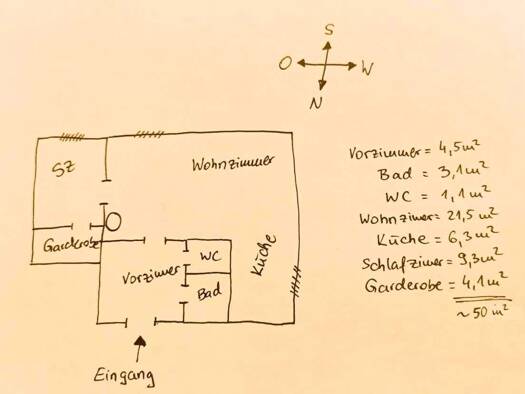 S
O W
N
SZ
Wohnzimmer
Garderobe
Vorzimmer
WC
Bad
Küche
Eingang
Vorzimmer = 4,5 m²
Bad = 3,1 m²
WC = 1,1 m²
Wohnzimer = 21,5 m²
Küche = 6,3 m²
Schlafzimer = 9,3 m²
Garderobe = 4,1 m²
~ 50 m²